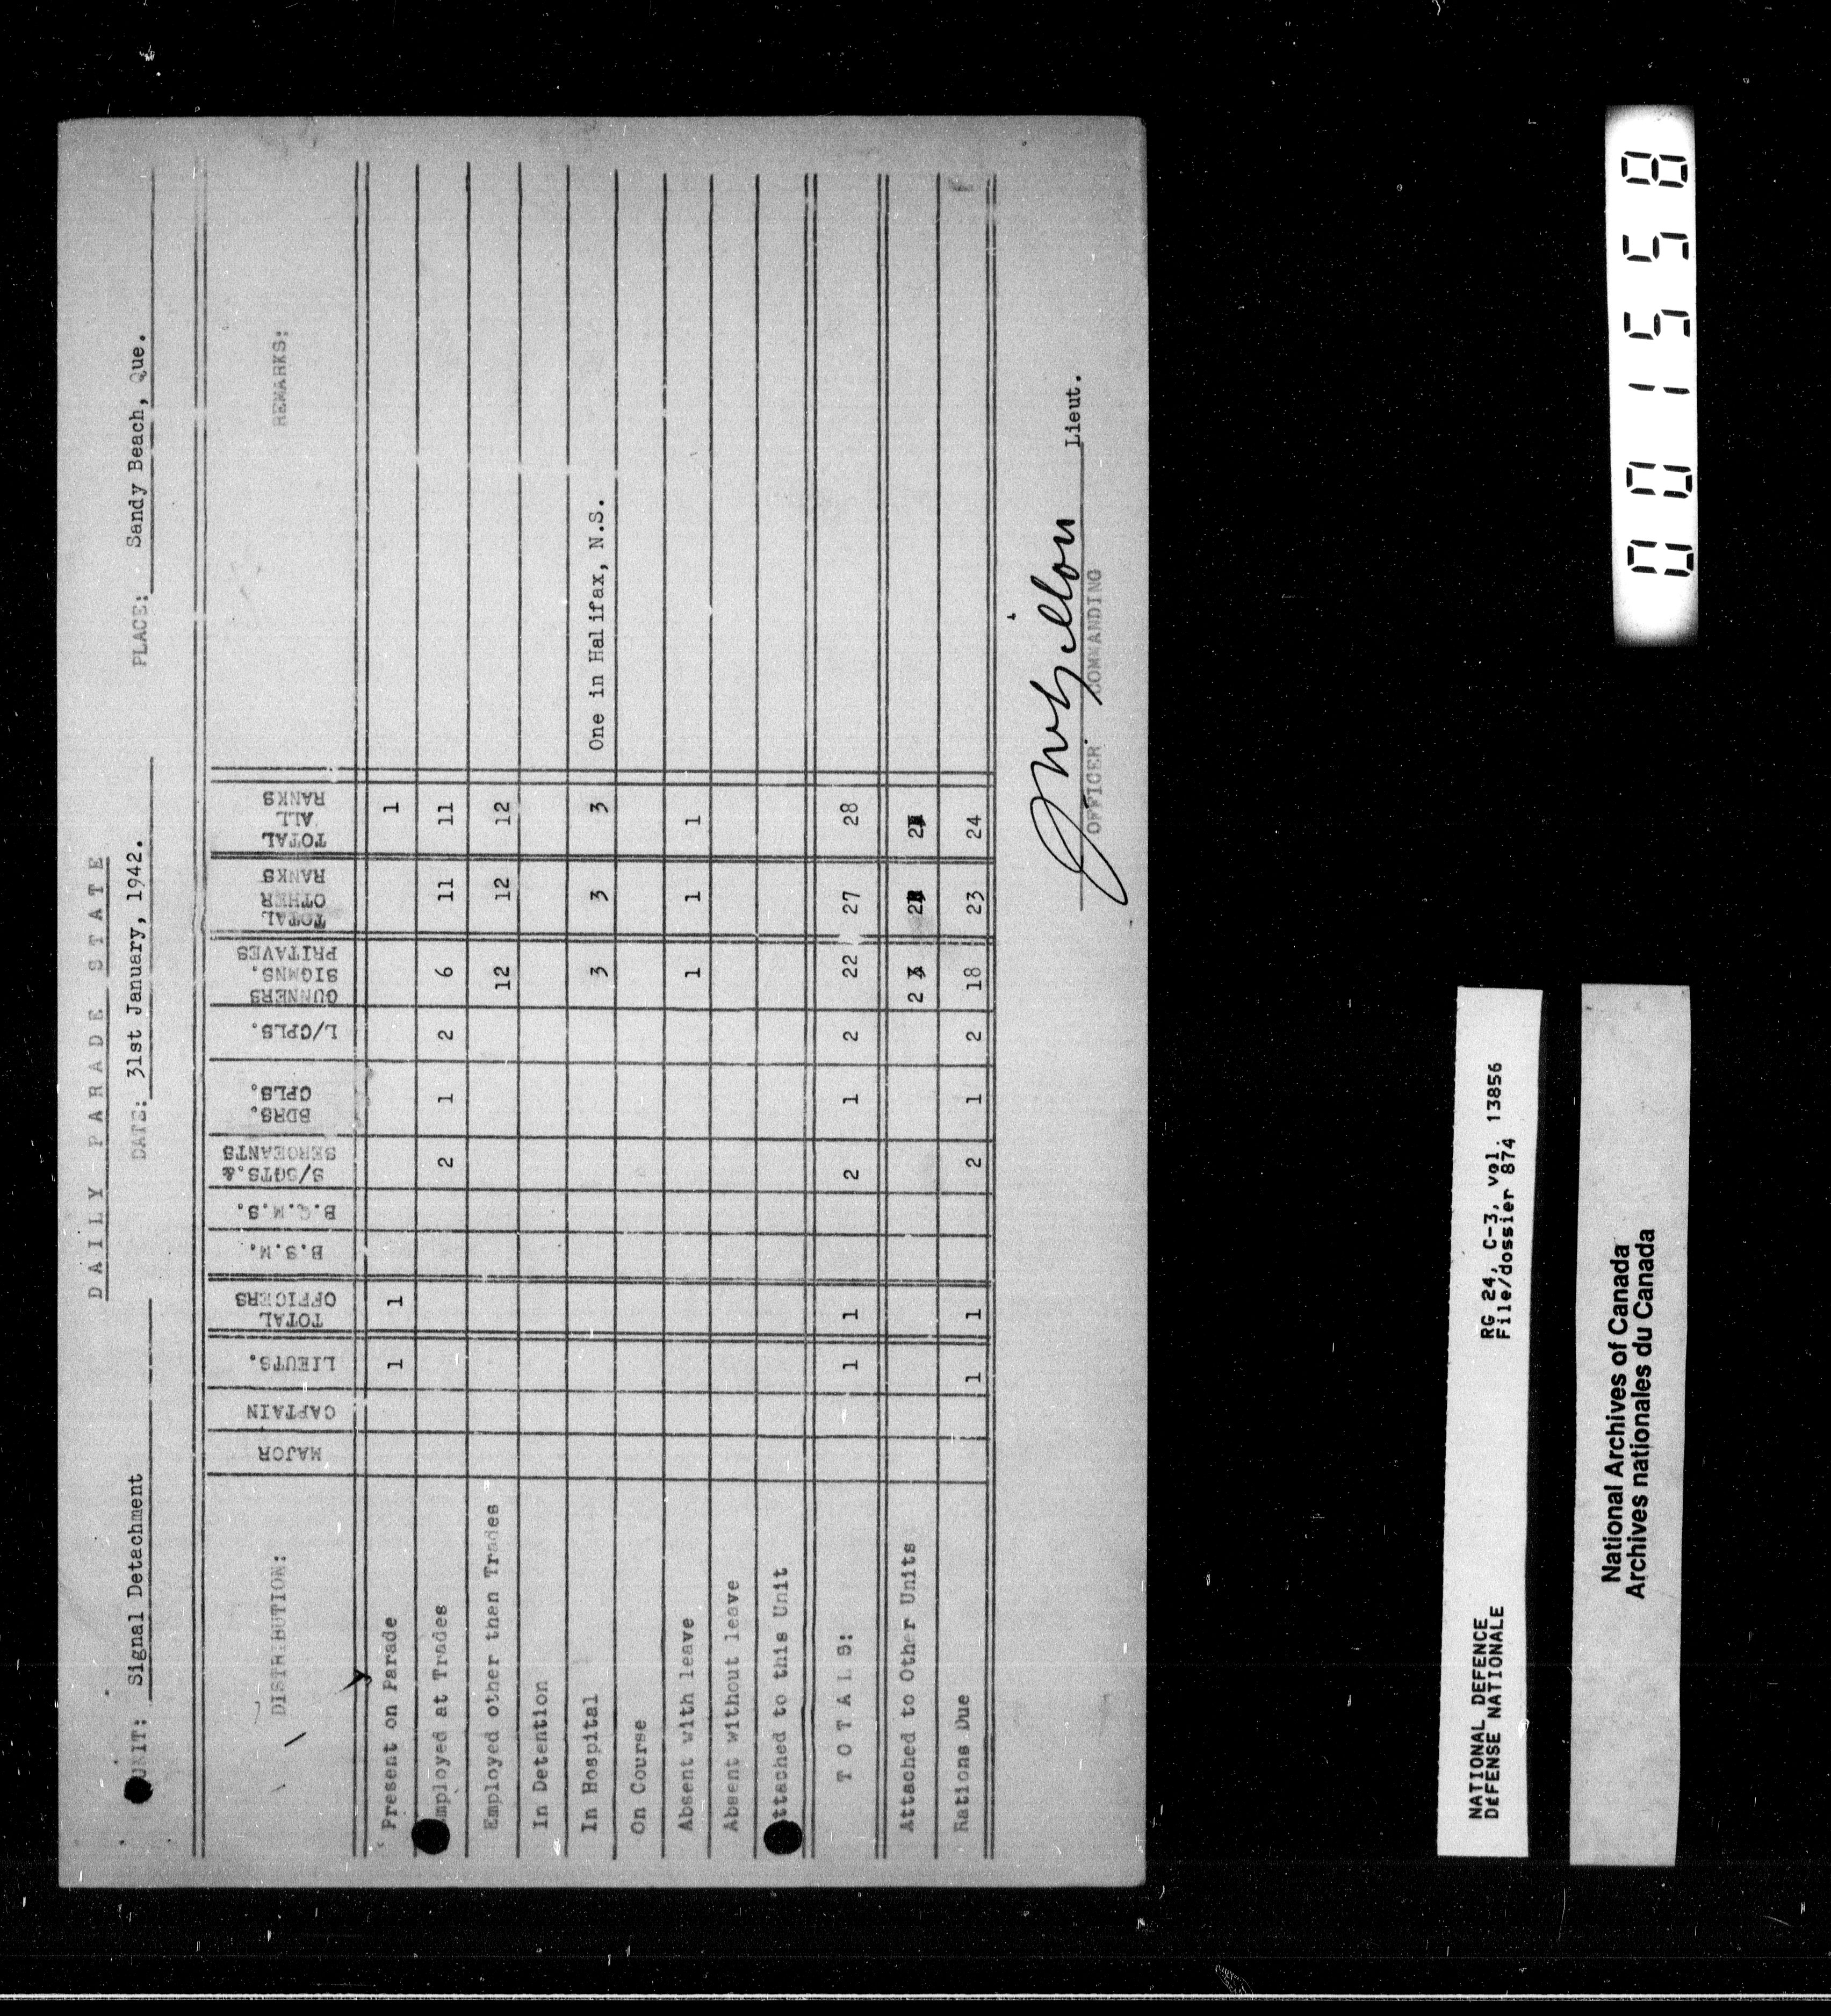 DAILY PARADE STATE
UNIT: Signal Detachment DATE: 31st January, 1942. PLACE: Sandy Beach, Que.
DISTRIBUTION: MAJOR CAPTAIN LIEUTS. TOTAL OFFICERS B.S.M. B.Q.M.S. S/SGTS.& SERGEANTS BDRS. CPLS. L/CPLS. GUNNERS SIGMNS. PRITAVES TOTAL OTHER RANKS TOTAL ALL RANKS REMARKS:
Present on Parade 1 1 1
Employed at Trades 2 1 2 6 11 11
Employed other than Trades 12 12 12
In Detention
In Hospital 3 3 3 One in Halifax, N.S.
On Course
Absent with leave 1 1 1
Absent without leave
Attached to this Unit
TOTALS: 1 1 2 1 2 22 27 28
Attached to Other Units 2 2 2
Rations Due 1 1 2 1 2 18 23 24
Lieut.
OFFICER COMMANDING
NATIONAL DEFENCE RG 24, C-3, vol. 13856
DÉFENSE NATIONALE File/dossier 874
National Archives of Canada
Archives nationales du Canada
001558